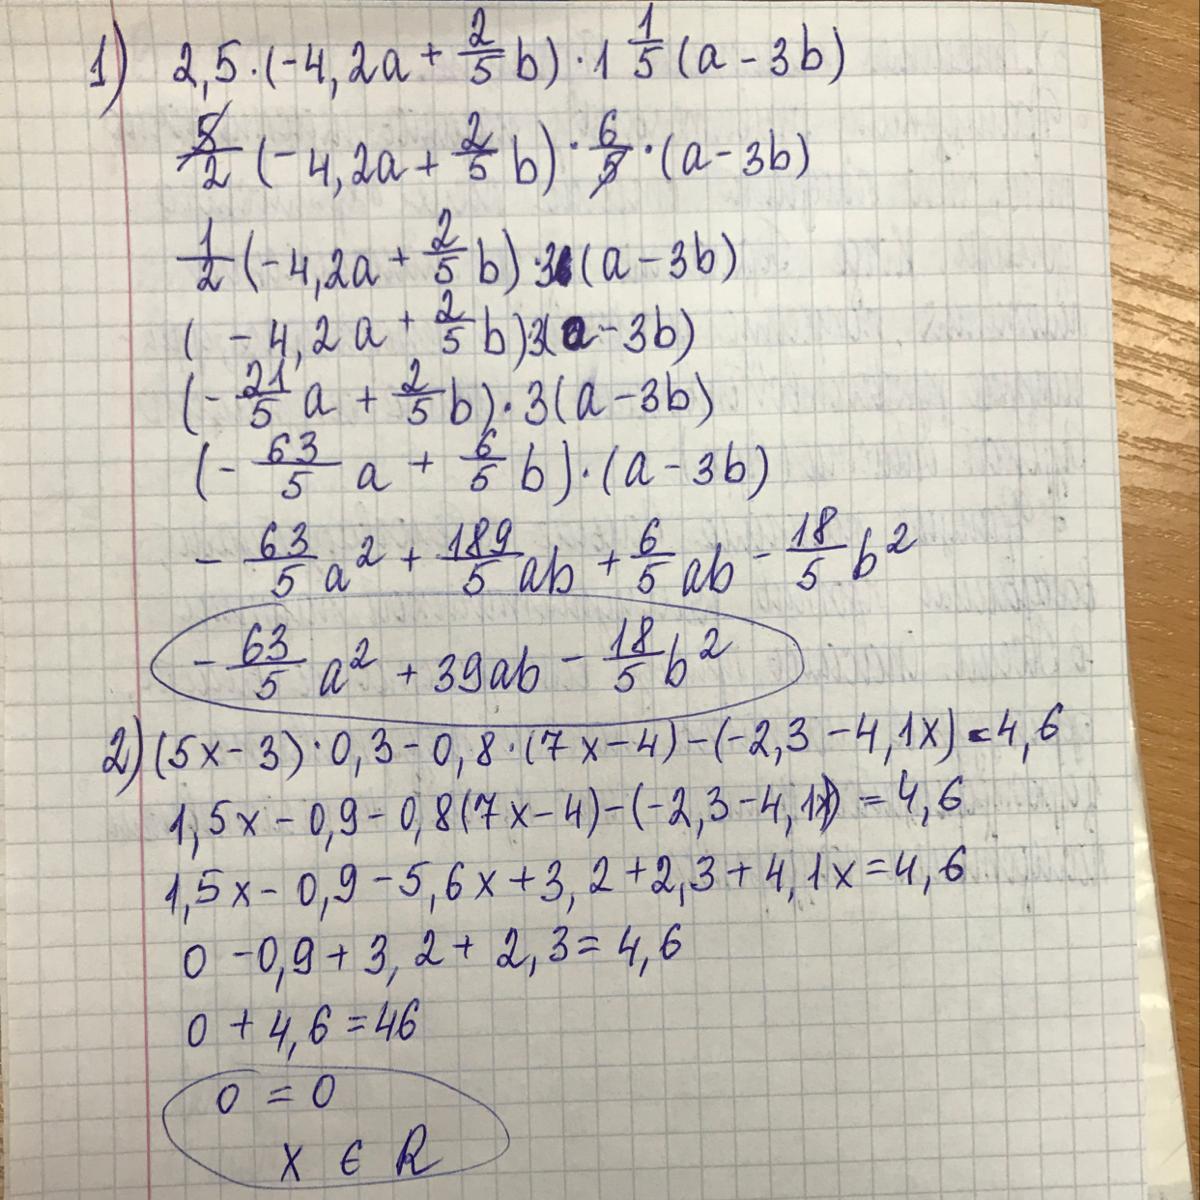 1) 2,5·(-4,2a + 2/5 b)·1 1/5 (a - 3b)
5/2 (-4,2a + 2/5 b)·6/5·(a - 3b)
1/2 (-4,2a + 2/5 b)·3(a - 3b)
(-4,2a + 2/5 b)3(a - 3b)
(-21/5 a + 2/5 b)·3(a - 3b)
(-63/5 a + 6/5 b)·(a - 3b)
-63/5 a² + 189/5 ab + 6/5 ab - 18/5 b²
-63/5 a² + 39ab - 18/5 b²
2) (5x - 3)·0,3 - 0,8·(7x - 4) - (-2,3 - 4,1x) = 4,6
1,5x - 0,9 - 0,8(7x - 4) - (-2,3 - 4,1x) = 4,6
1,5x - 0,9 - 5,6x + 3,2 + 2,3 + 4,1x = 4,6
0 - 0,9 + 3,2 + 2,3 = 4,6
0 + 4,6 = 46
0 = 0
x ∈ R